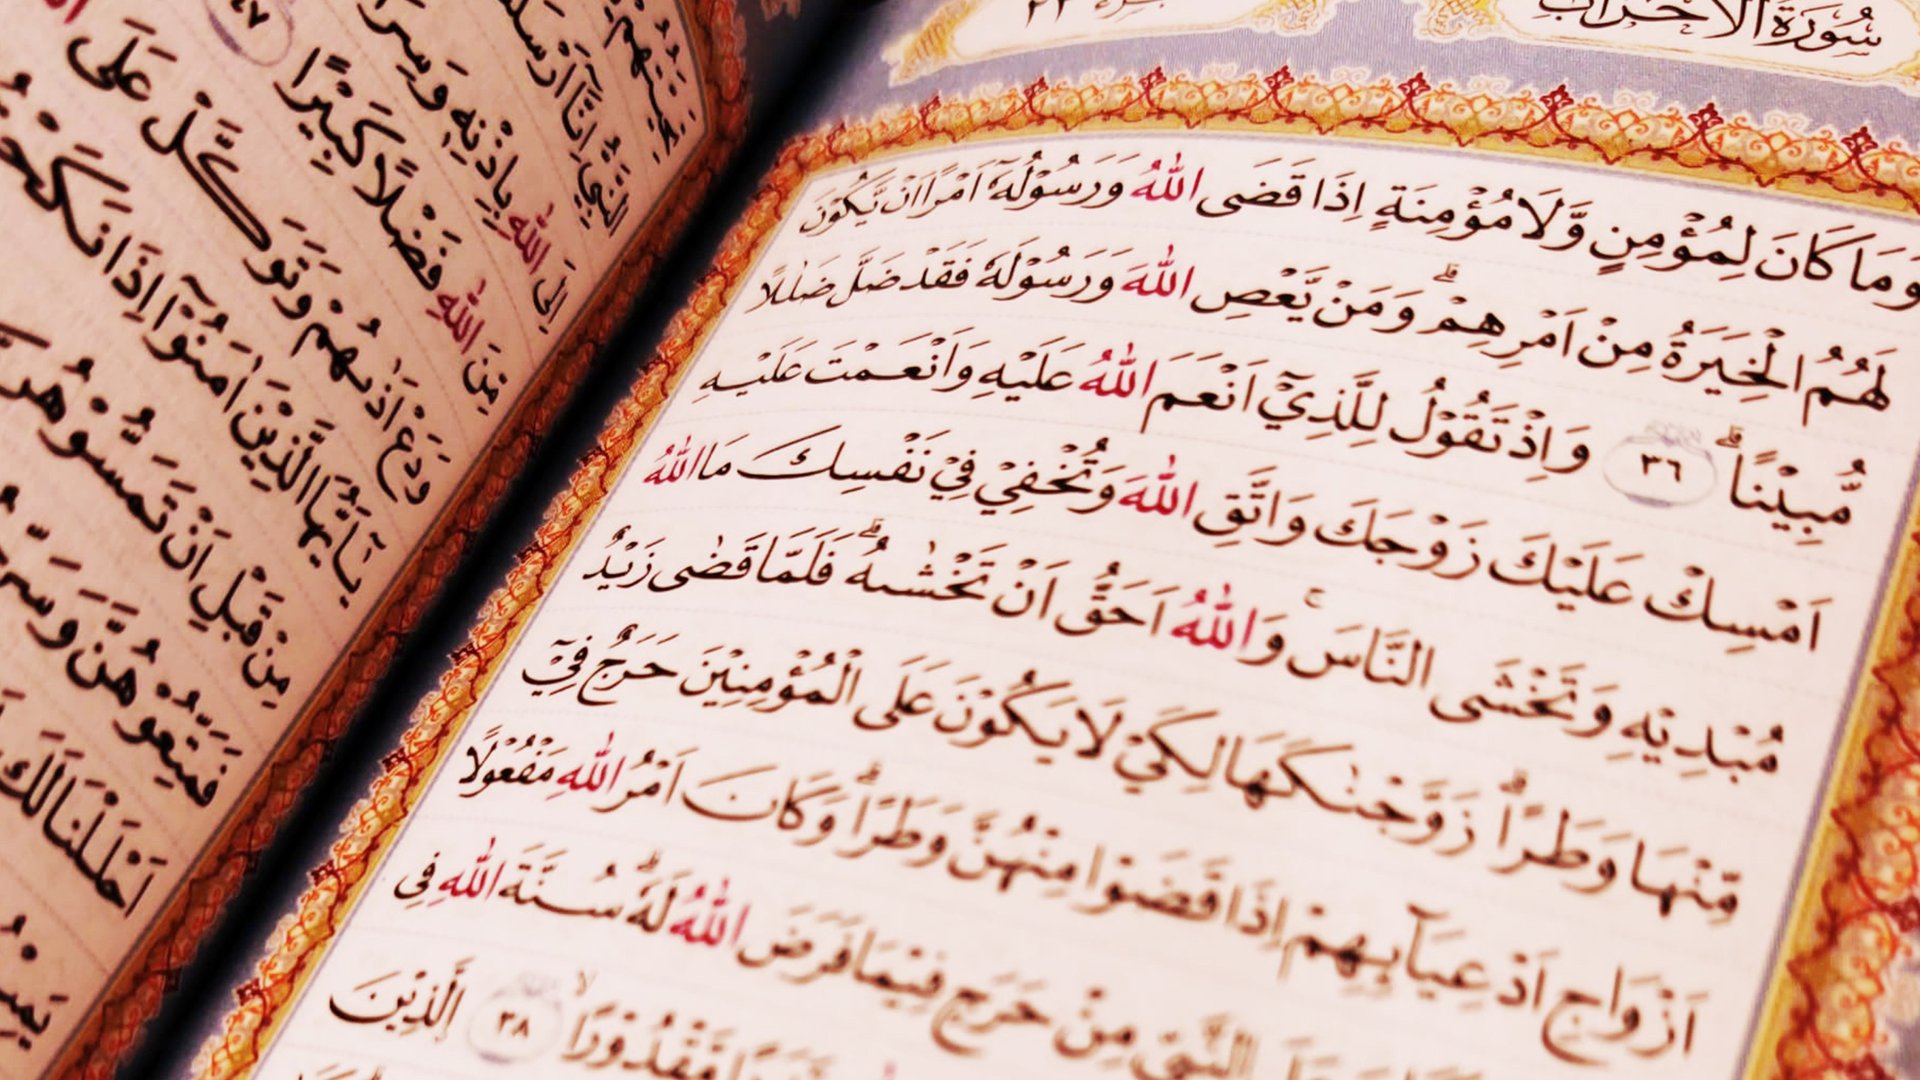 سُورَةُ الْأَحْزَاب
٢٢
وَمَا كَانَ لِمُؤْمِنٍ وَّلَا مُؤْمِنَةٍ اِذَا قَضَى اللّٰهُ وَرَسُوْلُهٗٓ اَمْرًا اَنْ يَّكُوْنَ
لَهُمُ الْخِيَرَةُ مِنْ اَمْرِهِمْ ۗ وَمَنْ يَّعْصِ اللّٰهَ وَرَسُوْلَهٗ فَقَدْ ضَلَّ ضَلٰلًا
مُّبِيْنًا ۗ ٣٦ وَاِذْ تَقُوْلُ لِلَّذِيْٓ اَنْعَمَ اللّٰهُ عَلَيْهِ وَاَنْعَمْتَ عَلَيْهِ
اَمْسِكْ عَلَيْكَ زَوْجَكَ وَاتَّقِ اللّٰهَ وَتُخْفِيْ فِيْ نَفْسِكَ مَا اللّٰهُ
مُبْدِيْهِ وَتَخْشَى النَّاسَ ۚ وَاللّٰهُ اَحَقُّ اَنْ تَخْشٰىهُ ۗ فَلَمَّا قَضٰى زَيْدٌ
مِّنْهَا وَطَرًا ۗ زَوَّجْنٰكَهَا لِكَيْ لَا يَكُوْنَ عَلَى الْمُؤْمِنِيْنَ حَرَجٌ فِيْٓ
اَزْوَاجِ اَدْعِيَاۤىِٕهِمْ اِذَا قَضَوْا مِنْهُنَّ وَطَرًا ۗ وَكَانَ اَمْرُ اللّٰهِ مَفْعُوْلًا
النَّبِيِّ مِنْ حَرَجٍ فِيْمَا فَرَضَ اللّٰهُ لَهٗ ۗ سُنَّةَ اللّٰهِ فِى
مَّقْدُوْرًا ۙ ٣٨ الَّذِيْنَ
النَّبِيُّ اِنَّآ اَرْسَلْ
اِلَى اللّٰهِ بِاِذْنِهٖ وَسِرَا
مِّنَ اللّٰهِ فَضْلًا كَبِيْرًا ٤٧
وَدَعْ اَذٰىهُمْ وَتَوَكَّلْ عَلَى
يٰٓاَيُّهَا الَّذِيْنَ اٰمَنُوْٓا اِذَا نَكَحْ
مِنْ قَبْلِ اَنْ تَمَسُّوْهُنَّ
فَمَتِّعُوْهُنَّ وَسَرِّ
اَحْلَلْنَا لَكَ
يَمِيْ